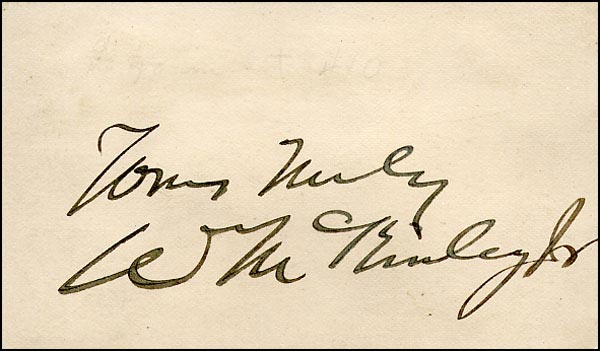 Yours Truly
W McKinley Jr